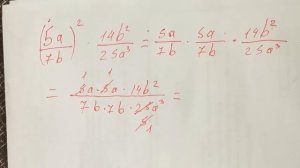 (5a/7b)² · 14b²/25a³ = 5a/7b · 5a/7b · 14b²/25a³
= 5a · 5a · 14b² / 7b · 7b · 25a³ =